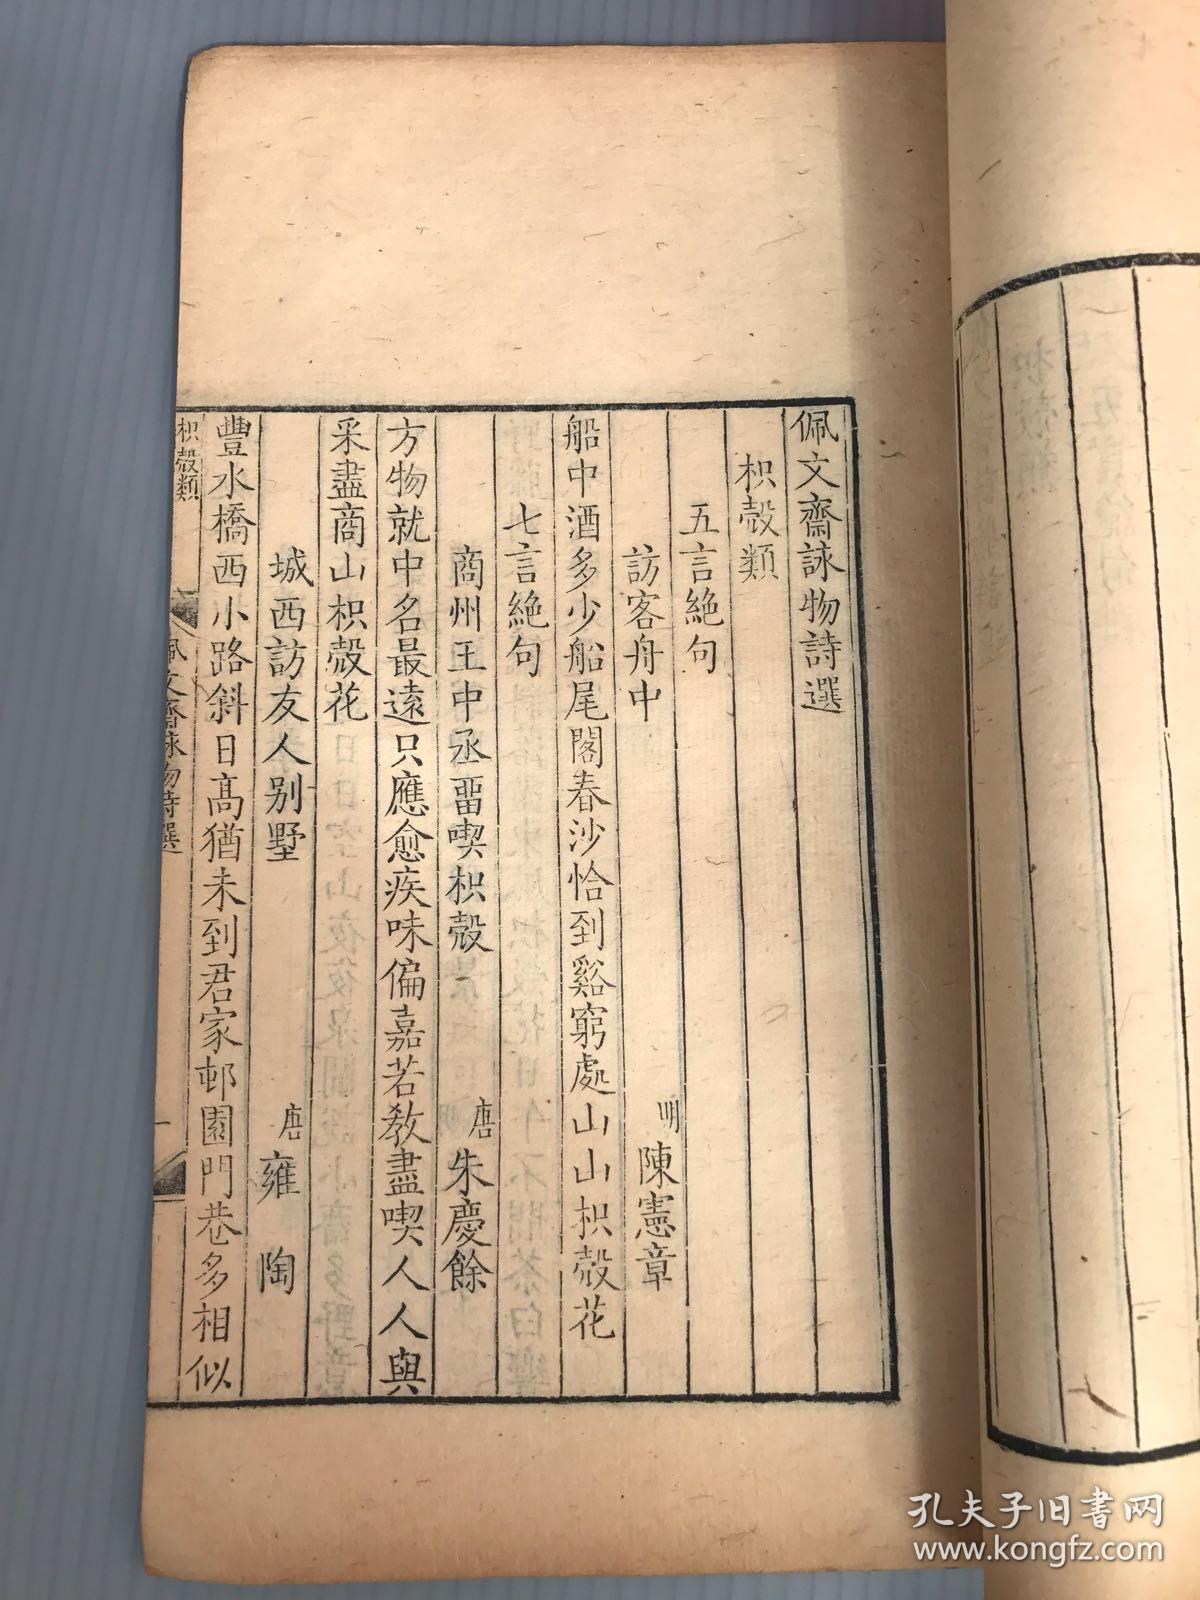 佩文齋詠物詩選
枳殼類
五言絶句
訪客舟中
明 陳憲章
船中酒多少船尾閣春沙恰到谿窮處山山枳殼花
七言絶句
商州王中丞畱喫枳殼
唐 朱慶餘
方物就中名最遠只應愈疾味偏嘉若教盡喫人人與
采盡商山枳殼花
城西訪友人别墅
唐 雍陶
豐水橋西小路斜日高猶未到君家邨園門巷多相似
枳殼類
佩文齋詠物詩選
一
孔夫子旧书网
www.kongfz.com